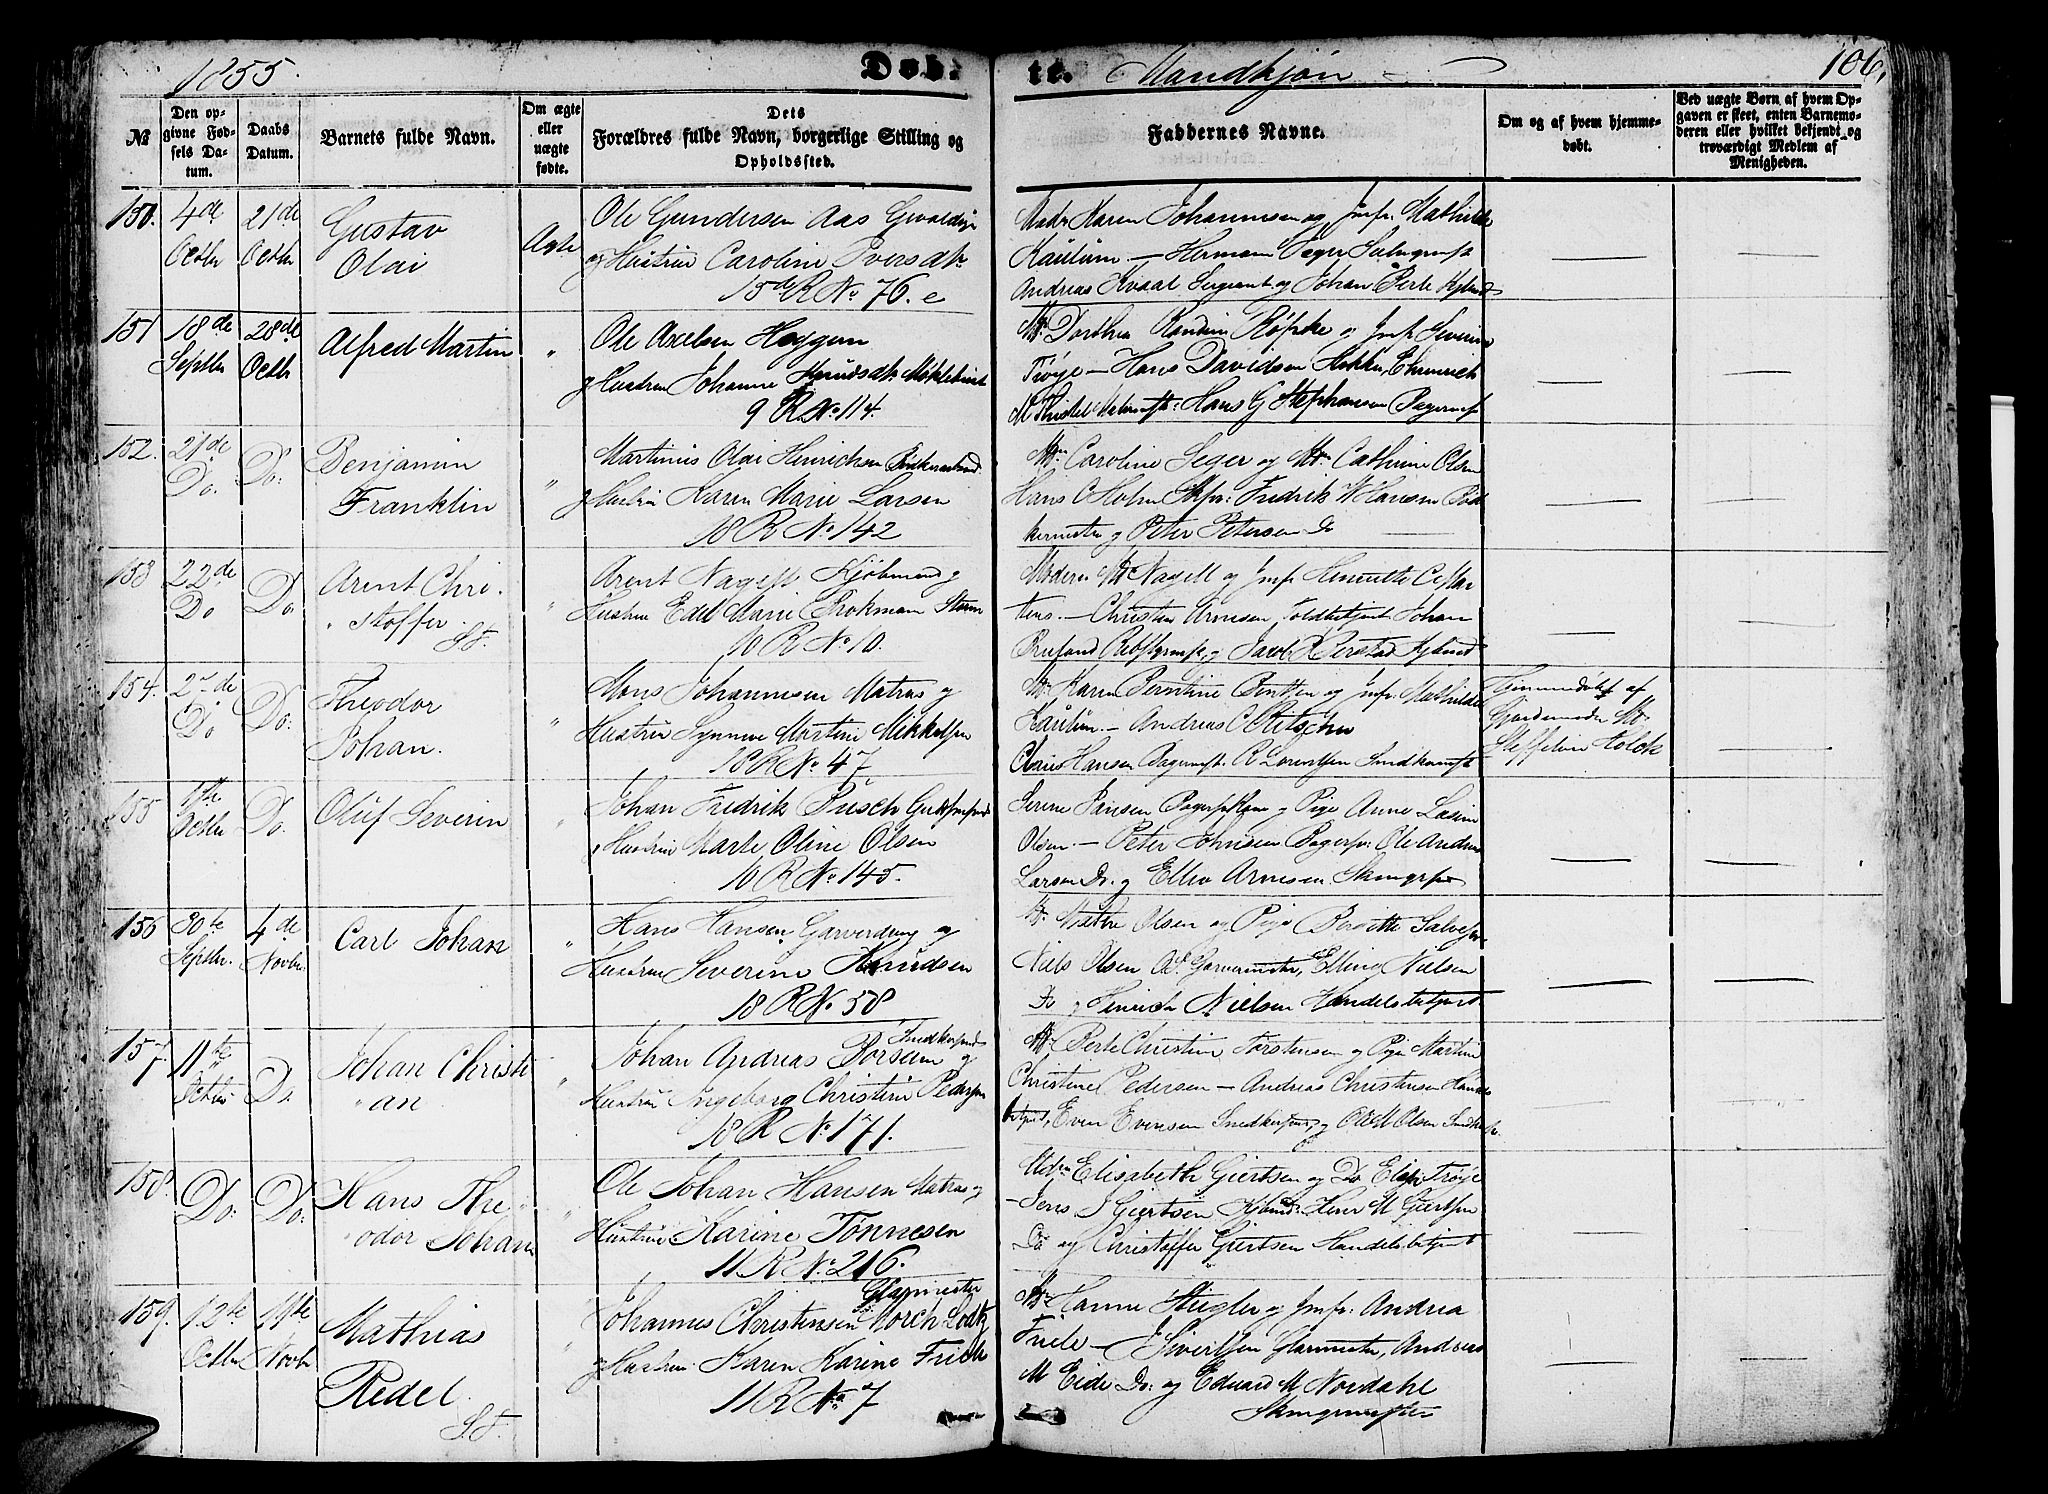 1855.
Døb-
te. Mandkjøn
106.
№
Den opgivne Fødsels Datum.
Daabs Datum.
Barnets fulde Navn.
Om ægte eller uægte fødte.
Dets Forældres fulde Navn, borgerlige Stilling og Opholdssted.
Faddernes Navne.
Om og af hvem hjemmedøbt.
Ved uægte Børn af hvem Opgaven er skeet, enten Barnemoderen eller hvilket bekjendt og troværdigt Medlem af Menigheden.
150. 4de Octbr 21de Octbr
Gustav
Olai
Ægte
Ole Gundersen Aas
og Hustru Caroline Iversdtr
15de R No 76. c
Mad. Karen Johannesen og Jmfr. Mathilde
Kaulum - Herman
Andreas Kvaal Sergeant og Johan
151 18de Septbr 28de Octbr
Alfred Martin
"
Ole Axelsen Heggem
og Hustru Johanne Knudsdtr Møklebust
9 R No 114.
M. Dorthea Røpke og Jmf Severine
Trøye - Hans Davidsen
Hans G Stephansen Bagermst
152. 21de Do. Do.
Benjamin
Franklin
"
Martinus Olai Henrichsen
og Hustru Karen Marie Larsen
18 R No 142
M. Caroline Seger og M. Cathrine Olsen
Hans C Holm Fredrik W Hansen Bød-
kermester og Peter Petersen Do
153 22de Do Do
Arent Chri-
stoffer.
S.F.
"
Arent Nagell Kjøbmand og
Hustru Edel Marie Brokman Storm
10 R No 10.
Moderen M. Nagell og Jmf Henriette C Mar-
tens. - Christian Arnesen Toldbetjent Johan
154. Do Do.
Theodor
Johan.
"
Mons Johannesen Matros og
Hustru Synneve Martine Mikkelsen
18 R No 47
M. Karen Berntine Bentsen og Jmfr. Mathilde
Kaulum. - Andreas C Ritschen
Claus Hansen Bagermst. R Lorentsen Snedkermst
Hjemmedøbt af
Gjordemoder M.
Steffeline Holck
155 Octbr Do.
Oluf Severin
"
Johan Fredrik Busch
og Hustru Marte Oline Olsen
10 R No 145.
Serine Jansen og Pige Anne
Olsen. - Peter Johnsen Ole Andreas
Larsen Do. og Ellev Arnesen
156 30te Septbr. 4de Novbr.
Carl Johan
"
Hans Hansen Garverdreng og
Hustru Severine Knudsen
18 R No 58
M. Olsen og Pige Bergitte
Niels Olsen Garvermester, Elling Nielsen
Do og Henrich Nielsen Handelsbetjent
157. 11te Octbr Do.
Johan Christi-
an
"
Snedkersvend
Johan Andreas Forsum og
Hustru Ingeborg Christine Pedersen
18 R No 171.
M. Torstensen og Pige Martine
Christine Pedersen - Andreas Christensen Handels
betjent, Even Evensen Snedkersvend, og Olsen
158. Do. Do.
Hans The-
odor Johan
"
Ole Johan Hansen Matros og
Hustru Karine Tønnesen
11 R No. 216.
Mdm Elisabeth Giertsen og Do Trøye
Jens S Giertsen Kjøbmd. Herr M Giertsen
Do og Christoffer Giertsen Handelsbetjent
159. 12te Octbr 11te Novbr
Mathias
Redel.
S.F.
"
Glasmester
Johannes Christensen
og Hustru. Karen Karine Friele
11 R No 7
Hanne Stegler og Jmfr. Andrea
Friele - J Sivertsen Glarmester, Andreas
M Eide Do. og Eduard M Nordahl